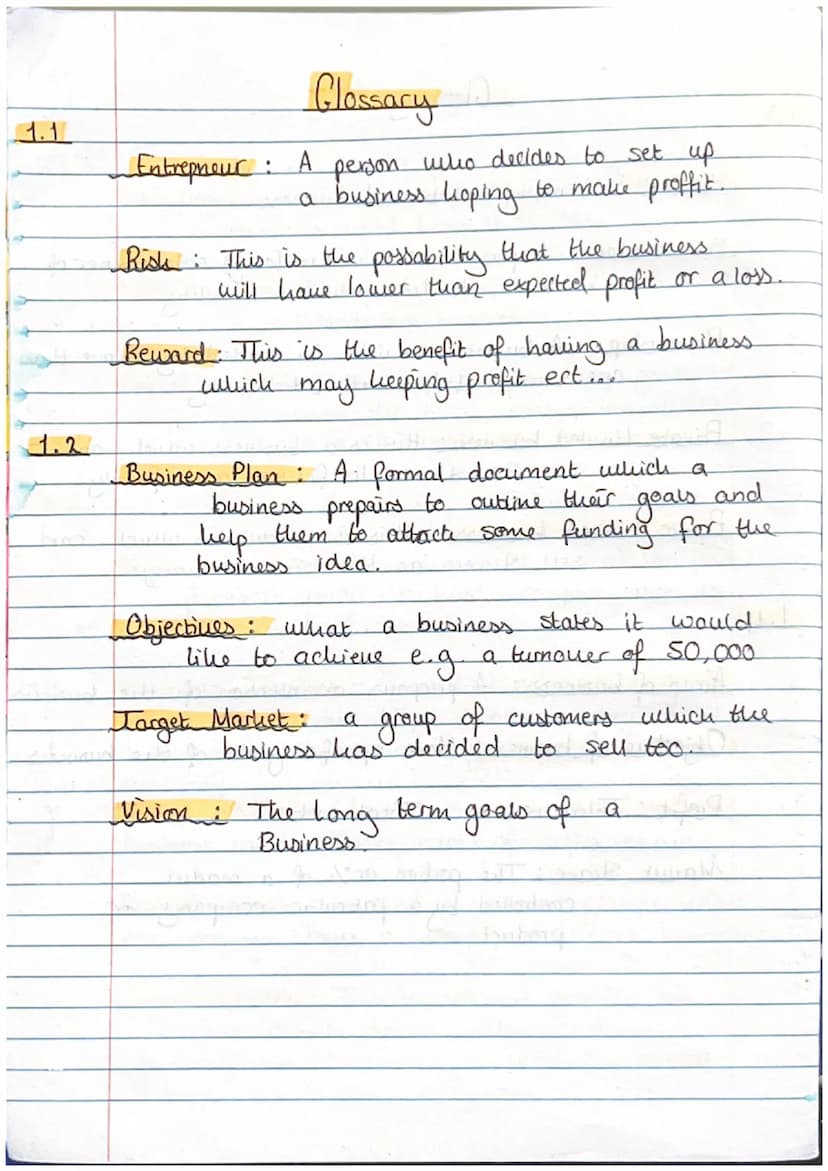 Glossary
1.1
Entrepneur : A person who decides to set up
a business hoping to make proffit.
Risk : This is the possability that the business
will have lower than expected profit or a loss.
Reward : This is the benefit of having a business
which may keeping profit ect...
1.2
Business Plan : A formal document which a
business prepairs to outline their goals and
help them to attack some funding for the
business idea.
Objectives : what a business states it would
like to achieve e.g. a turnover of 50,000
Target Market : a group of customers which the
business has decided to sell too.
Vision : The long term goals of a
Business.